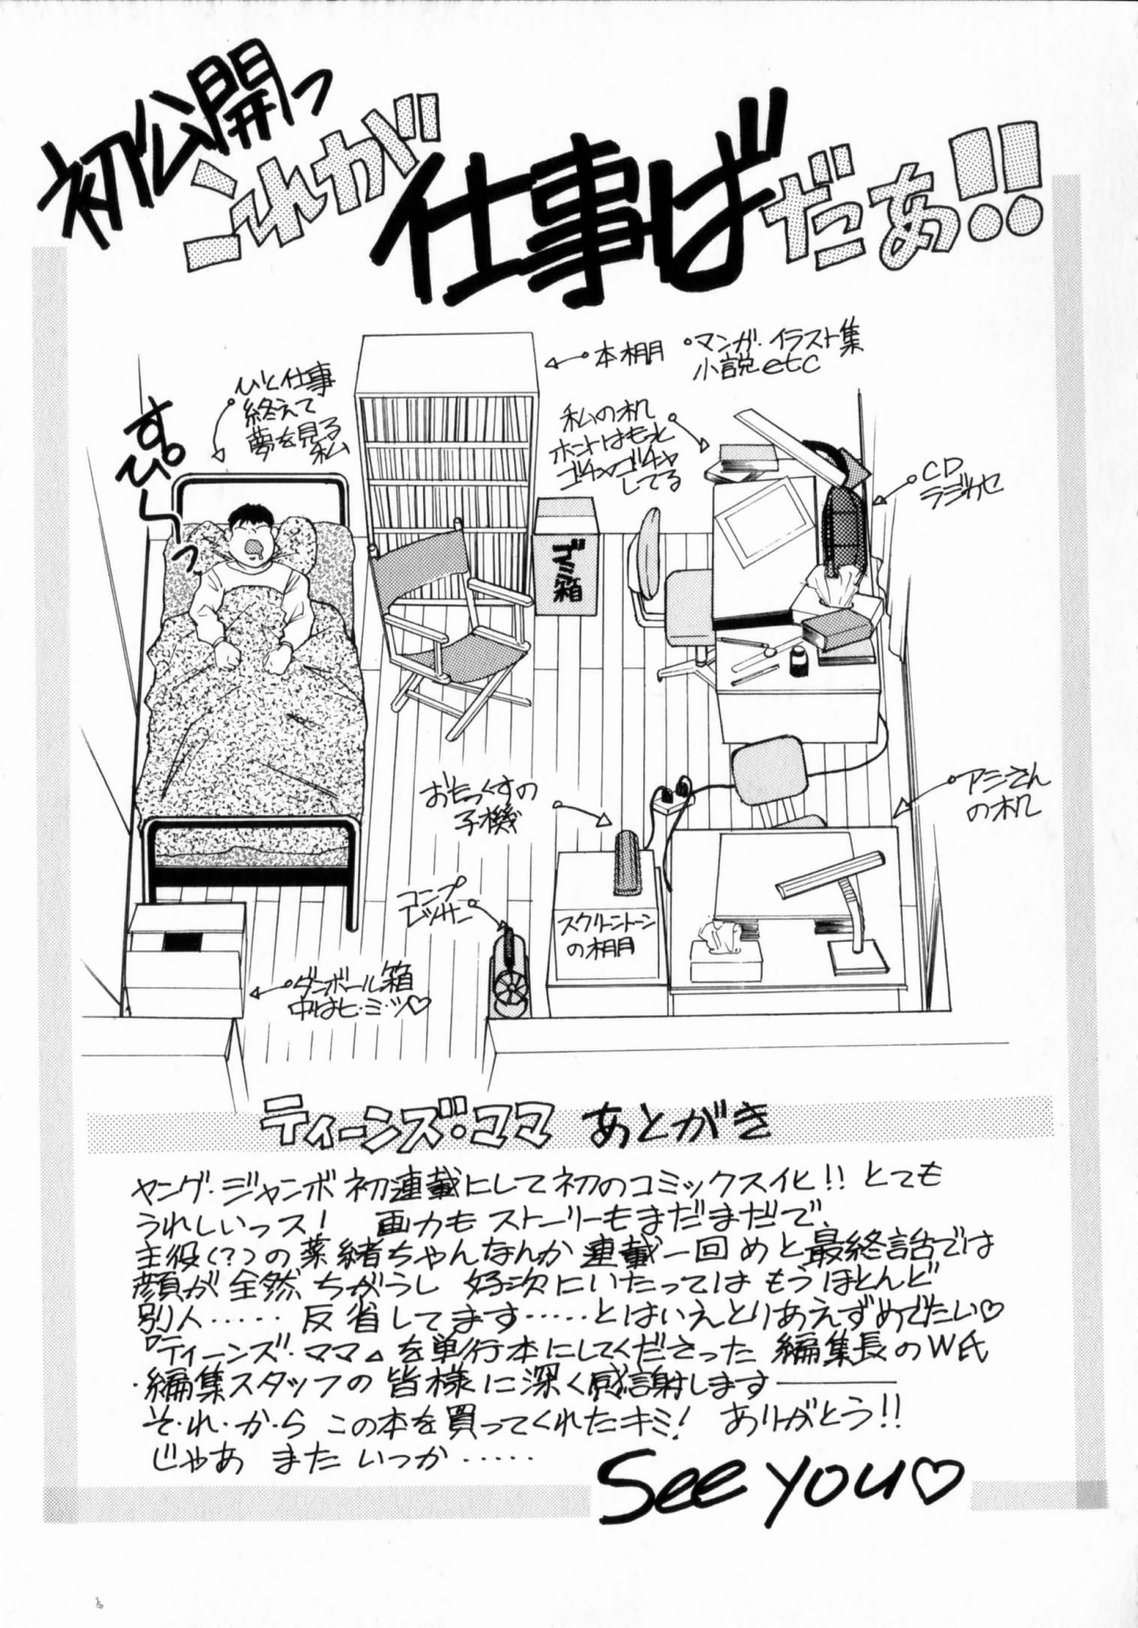 初公開っ
これが
仕事ば
だあ!!
本棚
・マンガ・イラスト集
小説etc
ひと仕事
終えて
夢を見る
私
すぴ～っ
私の机
ホントはもっと
ゴチャゴチャ
してる
CD
ラジカセ
ゴミ箱
おもっくすの
子機
アシさんの机
コンプ
レッサー
スクリーントーン
の棚
ダンボール箱
中はヒ・ミ・ツ♡
ティーンズ・ママ あとがき
ヤング・ジャンボ初連載にして初のコミックス化!! とても
うれしいっス! 画力もストーリーもまだまだで、
主役(?)の薬緒ちゃんなんか連載一回めと最終話では
顔が全然ちがうし 好次にいたってはもうほとんど
別人‥‥‥反省してます‥‥‥とはいえとりあえずめでたい♡
『ティーンズ・ママ』を単行本にしてくださった編集長のW氏
・編集スタッフの皆様に深く感謝します――
そ・れ・か・ら この本を買ってくれたキミ! ありがとう!!
じゃあ またいつか‥‥‥
See you♡